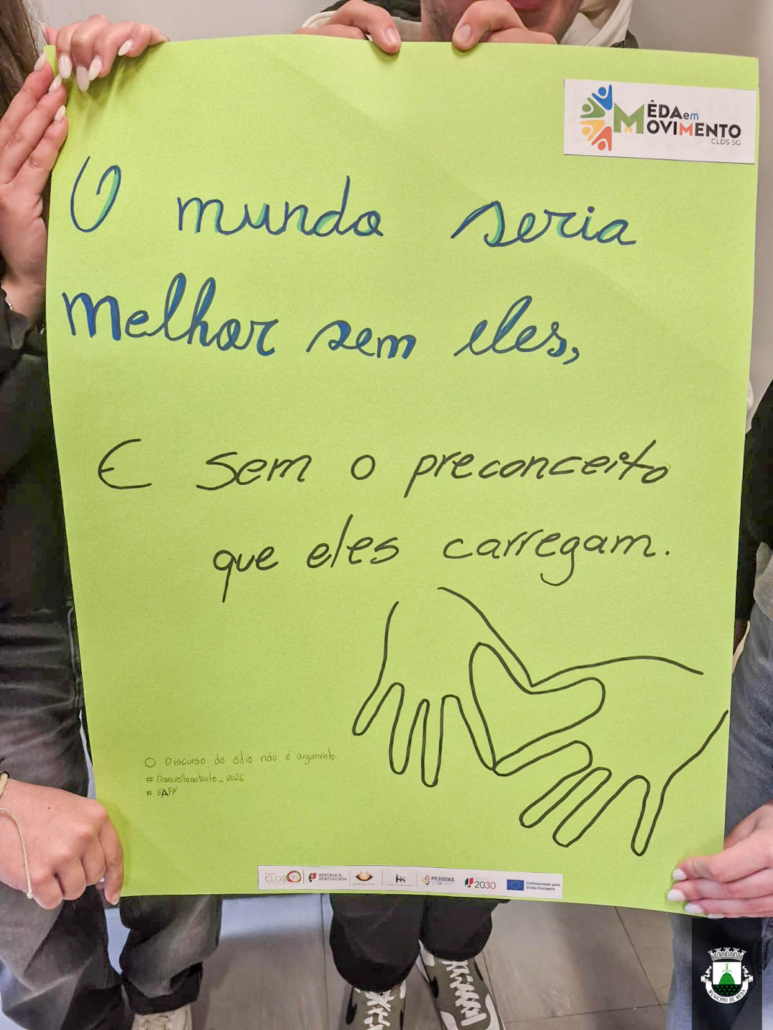 MÊDA em
MOVIMENTO
CLDS 5G
O mundo seria
melhor sem eles,
E sem o preconceito
que eles carregam.
O Discurso do ódio não é argumento.
#Daravoltaaotexto_2026
REPÚBLICA
PORTUGUESA
PESSOAS
2030
Cofinanciado pela
União Europeia